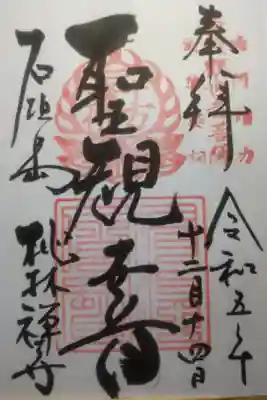 奉拝
令和五年
十二月十四日
聖観音
石垣島
桃林禅寺